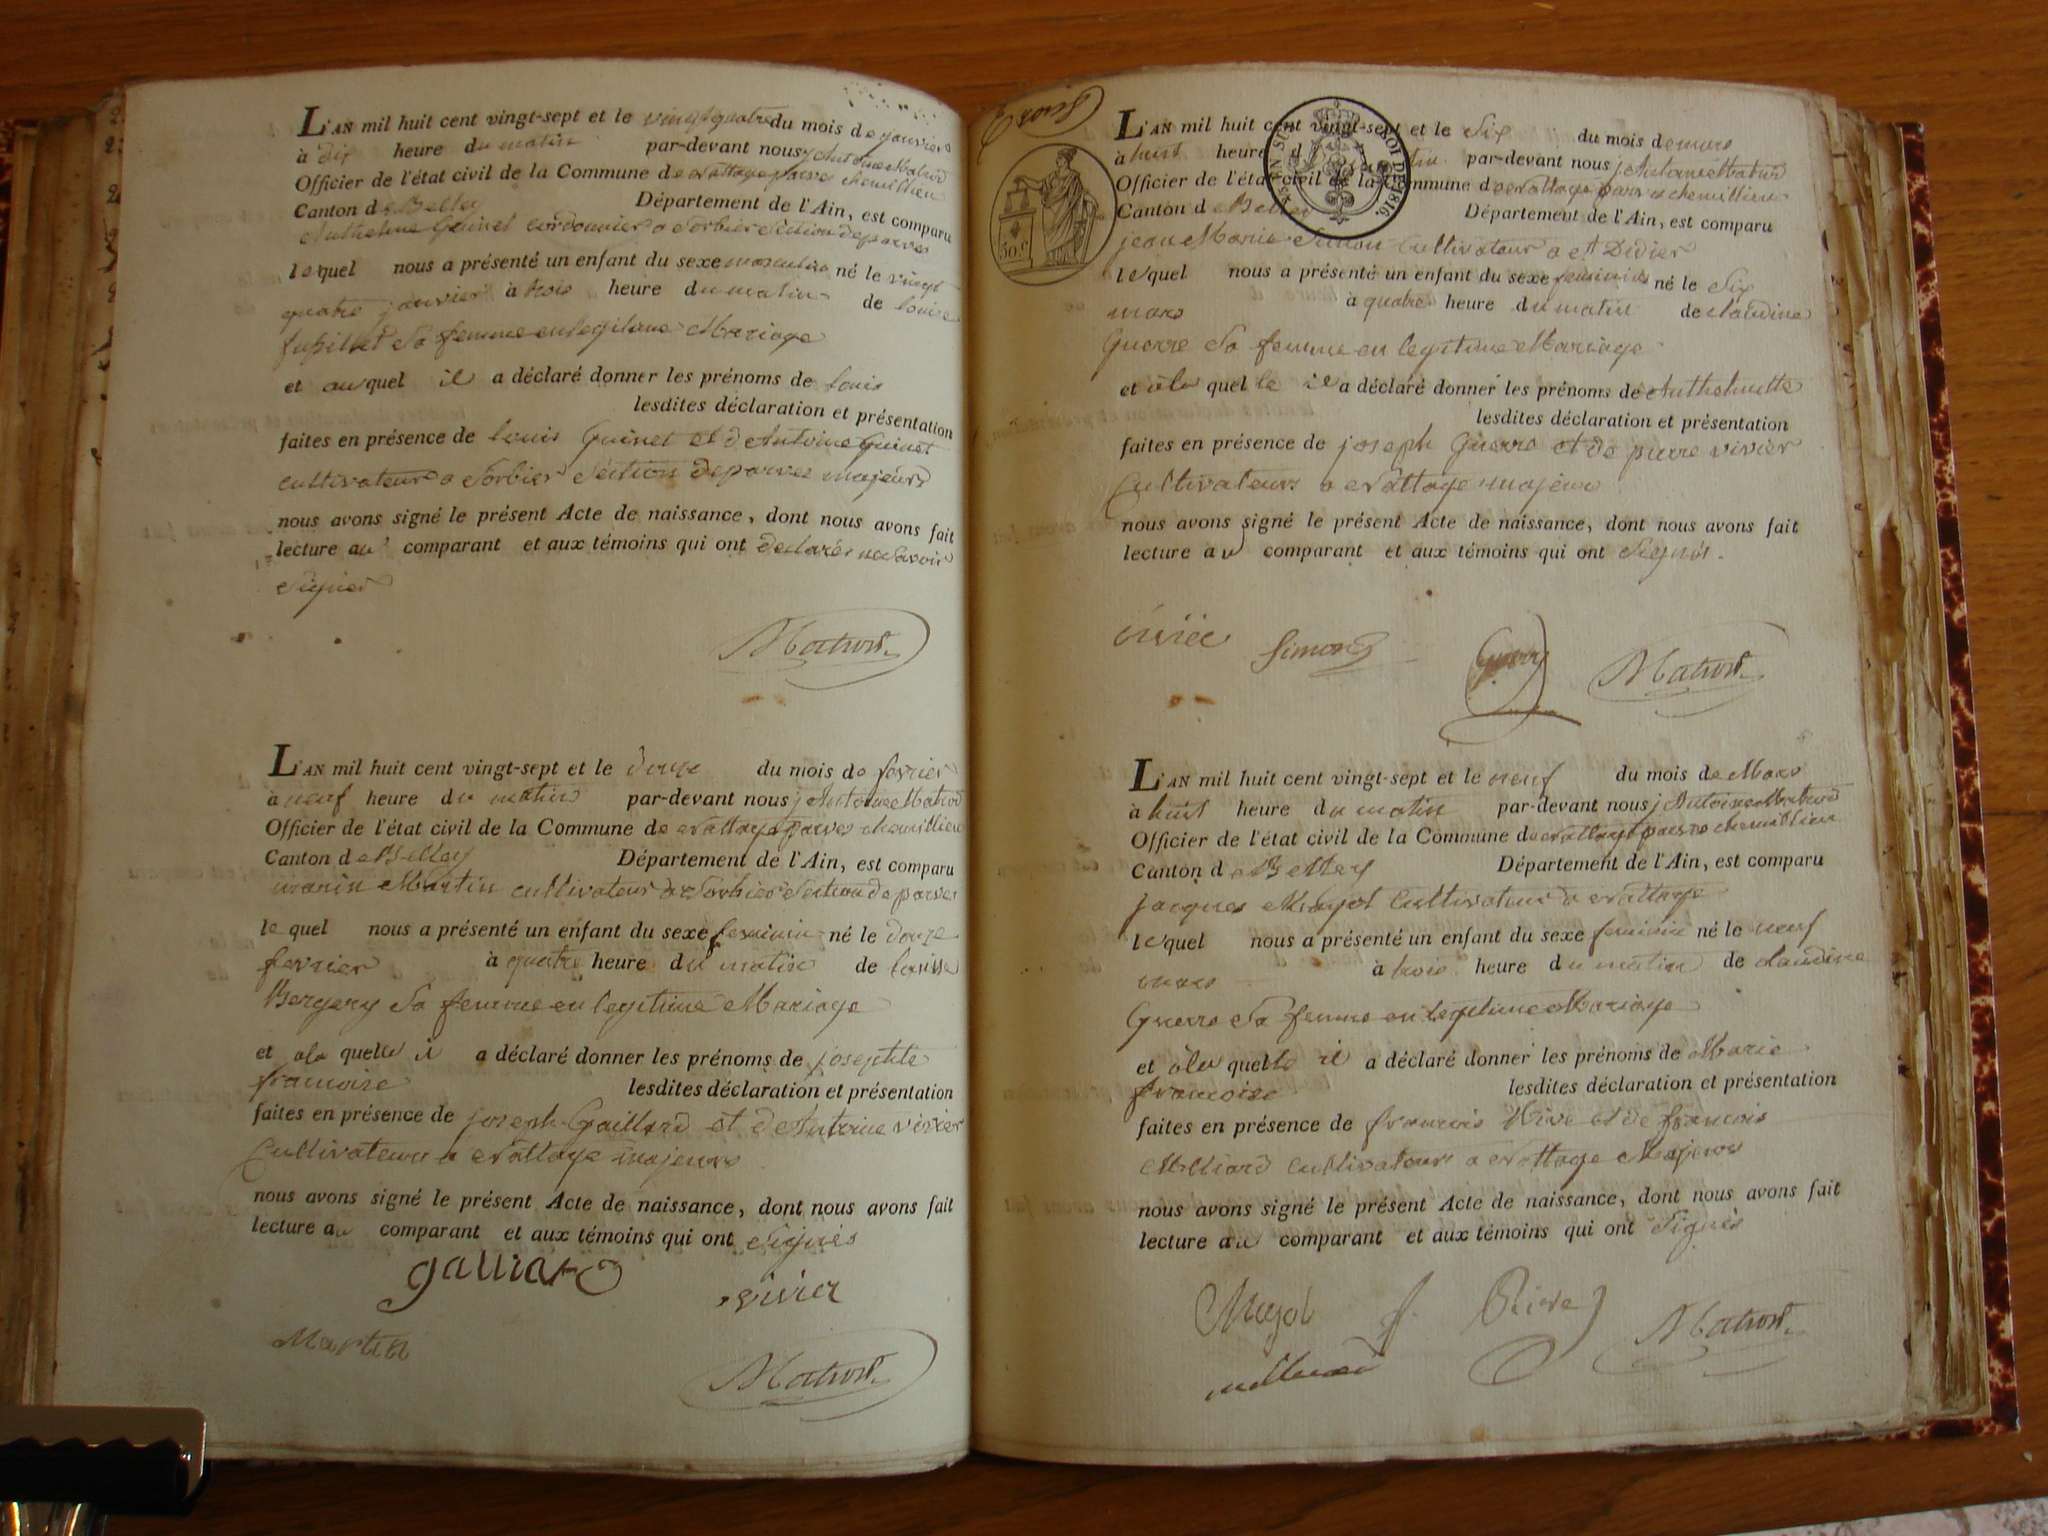 L'AN mil huit cent vingt-sept et le vingt quatre du mois de janvier
à dix heure du matin par-devant nous j Antoine Matrod
Officier de l'état civil de la Commune de nattage parves chemillieu
Canton de Belley Département de l'Ain, est comparu
Anthelme Guinet cordonnier a Sorbier Section de parves
lequel nous a présenté un enfant du sexe masculin né le vingt
quatre janvier à trois heure du matin de louise
sa femme en legitime Mariage
et auquel il a déclaré donner les prénoms de louis
lesdites déclaration et présentation
faites en présence de louis Guinet et d Antoine Guinet
cultivateur a Sorbier Section de parves majeurs
nous avons signé le présent Acte de naissance, dont nous avons fait
lecture au comparant et aux témoins qui ont declarés ne Savoir
Signer
Matrod
L'AN mil huit cent vingt-sept et le douze du mois de fevrier
à neuf heure du matin par-devant nous j Antoine Matrod
Officier de l'état civil de la Commune de nattage parves chemillieu
Canton de Belley Département de l'Ain, est comparu
marin Martin cultivateur a Sorbier Section de parves
lequel nous a présenté un enfant du sexe feminin né le douze
fevrier à quatre heure du matin de
Bergery Sa femme en legitime Mariage
et a la quelle il a déclaré donner les prénoms de josephte
francoise lesdites déclaration et présentation
faites en présence de joseph Gaillard et d Antoine vivier
Cultivateurs a nattage majeurs
nous avons signé le présent Acte de naissance, dont nous avons fait
lecture au comparant et aux témoins qui ont Signés
vivier
Martin
Matrod
50 c
L'AN mil huit cent vingt-sept et le Six du mois de mars
à huit heure du matin par-devant nous j Antoine Matrod
Officier de l'état civil de la Commune de nattage parves chemillieu
Canton de Belley Département de l'Ain, est comparu
jean Marie Simon Cultivateur a St Didier
lequel nous a présenté un enfant du sexe feminin né le Six
mars à quatre heure du matin de claudine
Guerre Sa femme en legitime Mariage
et à la quelle il a déclaré donner les prénoms de Anthelmette
lesdites déclaration et présentation
faites en présence de joseph Guerre et de pierre vivier
Cultivateurs a nattage majeurs
nous avons signé le présent Acte de naissance, dont nous avons fait
lecture au comparant et aux témoins qui ont Signés.
Simon Matrod
L'AN mil huit cent vingt-sept et le neuf du mois de Mars
à huit heure du matin par-devant nous j Antoine Matrod
Officier de l'état civil de la Commune de nattage parves chemillieu
Canton de Belley Département de l'Ain, est comparu
jacques Mugot Cultivateur a nattage
lequel nous a présenté un enfant du sexe feminin né le neuf
mars à trois heure du matin de claudine
Guerre Sa femme en legitime Mariage
et à la quelle il a déclaré donner les prénoms de Marie
francoise lesdites déclaration et présentation
faites en présence de francois Rive et de francois
Milliard Cultivateurs a nattage Majeurs
nous avons signé le présent Acte de naissance, dont nous avons fait
lecture au comparant et aux témoins qui ont Signés
Mugot f. Rive Matrod